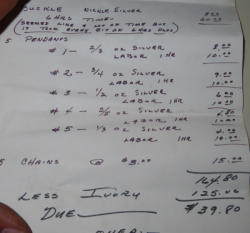 BUCKLE NICKLE SILVER
6 HRS TIME.
(SEEMED LIKE A LOT OF TIME BUT
IT TOOK EVERY BIT OF 6 HRS PLUS)
5 PENDANTS
#1 - 2/3 OZ SILVER 8.00
LABOR 1 HR 10.00
#2 - 3/4 OZ SILVER 9.00
LABOR 1 HR 10.00
#3 - 1/2 OZ SILVER
LABOR 1 HR 10.00
#4 - 2/5 OZ SILVER 4.80
LABOR 1 HR 10.00
#5 - 1/3 OZ SILVER 4.00
LABOR 1 HR 10.00
5 CHAINS @ $3.00 15.00
164.80
LESS IVORY 125.00
DUE $39.80